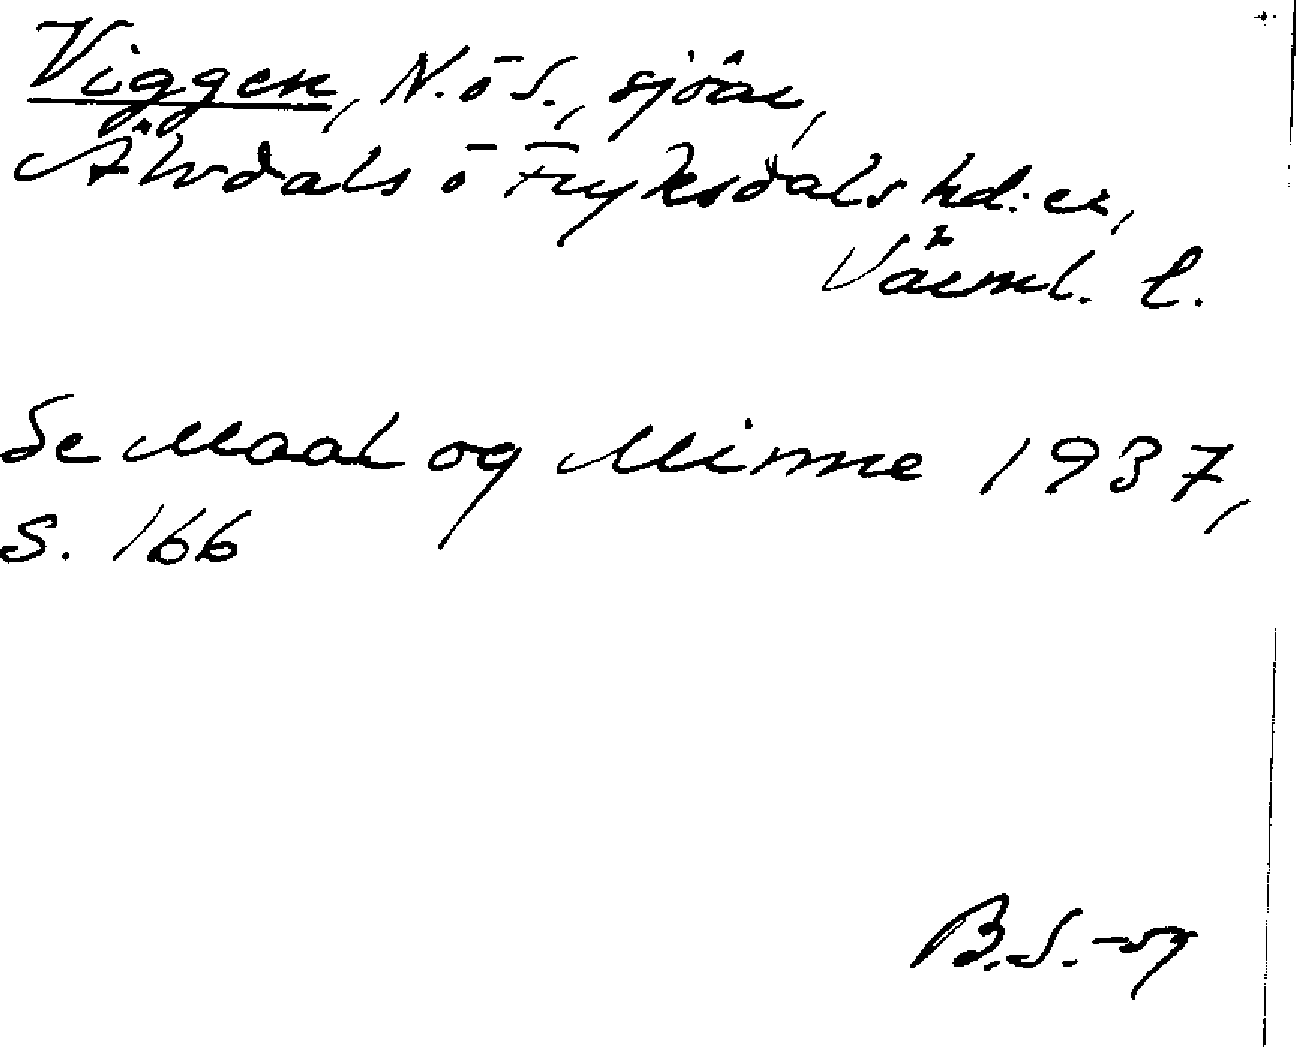 Viggen, N. ō S., sjöar,
Älvdals ō Fryksdals hd:er,
Värml. l.
Se Maal og Minne 1937,
s. 166
B.S.-sg